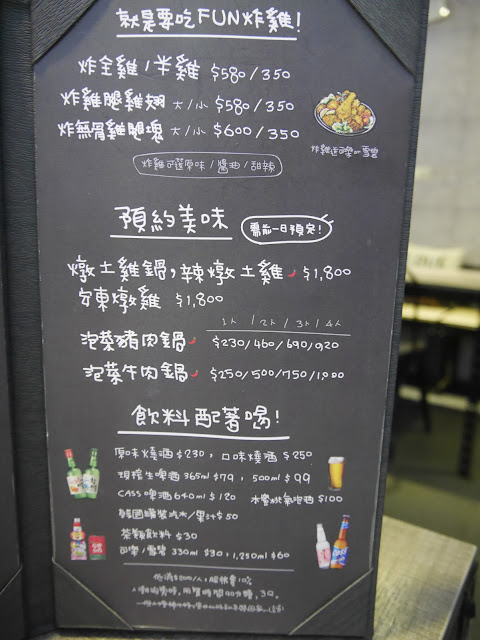 就是要吃FUN炸雞!
炸全雞/半雞 $580/350
炸雞腿雞翅 大/小 $580/350
炸無骨雞腿塊 大/小 $600/350
炸雞可選原味/醬油/甜辣
炸雞送可樂or雪碧
預約美味 需前一日預定!
燉土雞鍋,辣燉土雞 $1,800
安東燉雞 $1,800
1人/2人/3人/4人
泡菜豬肉鍋 $230/460/690/920
泡菜牛肉鍋 $250/500/750/1,000
飲料配著喝!
原味燒酒 $230, 口味燒酒 $250
現榨生啤酒 365ml $79, 500ml $99
CASS啤酒 640ml $120 水蜜桃氣泡酒 $100
韓國罐裝汽水/果汁 $50
茶類飲料 $30
可樂/雪碧 330ml $30, 1,250ml $60
低消$200/人,服務費10%
用餐時間90分鐘